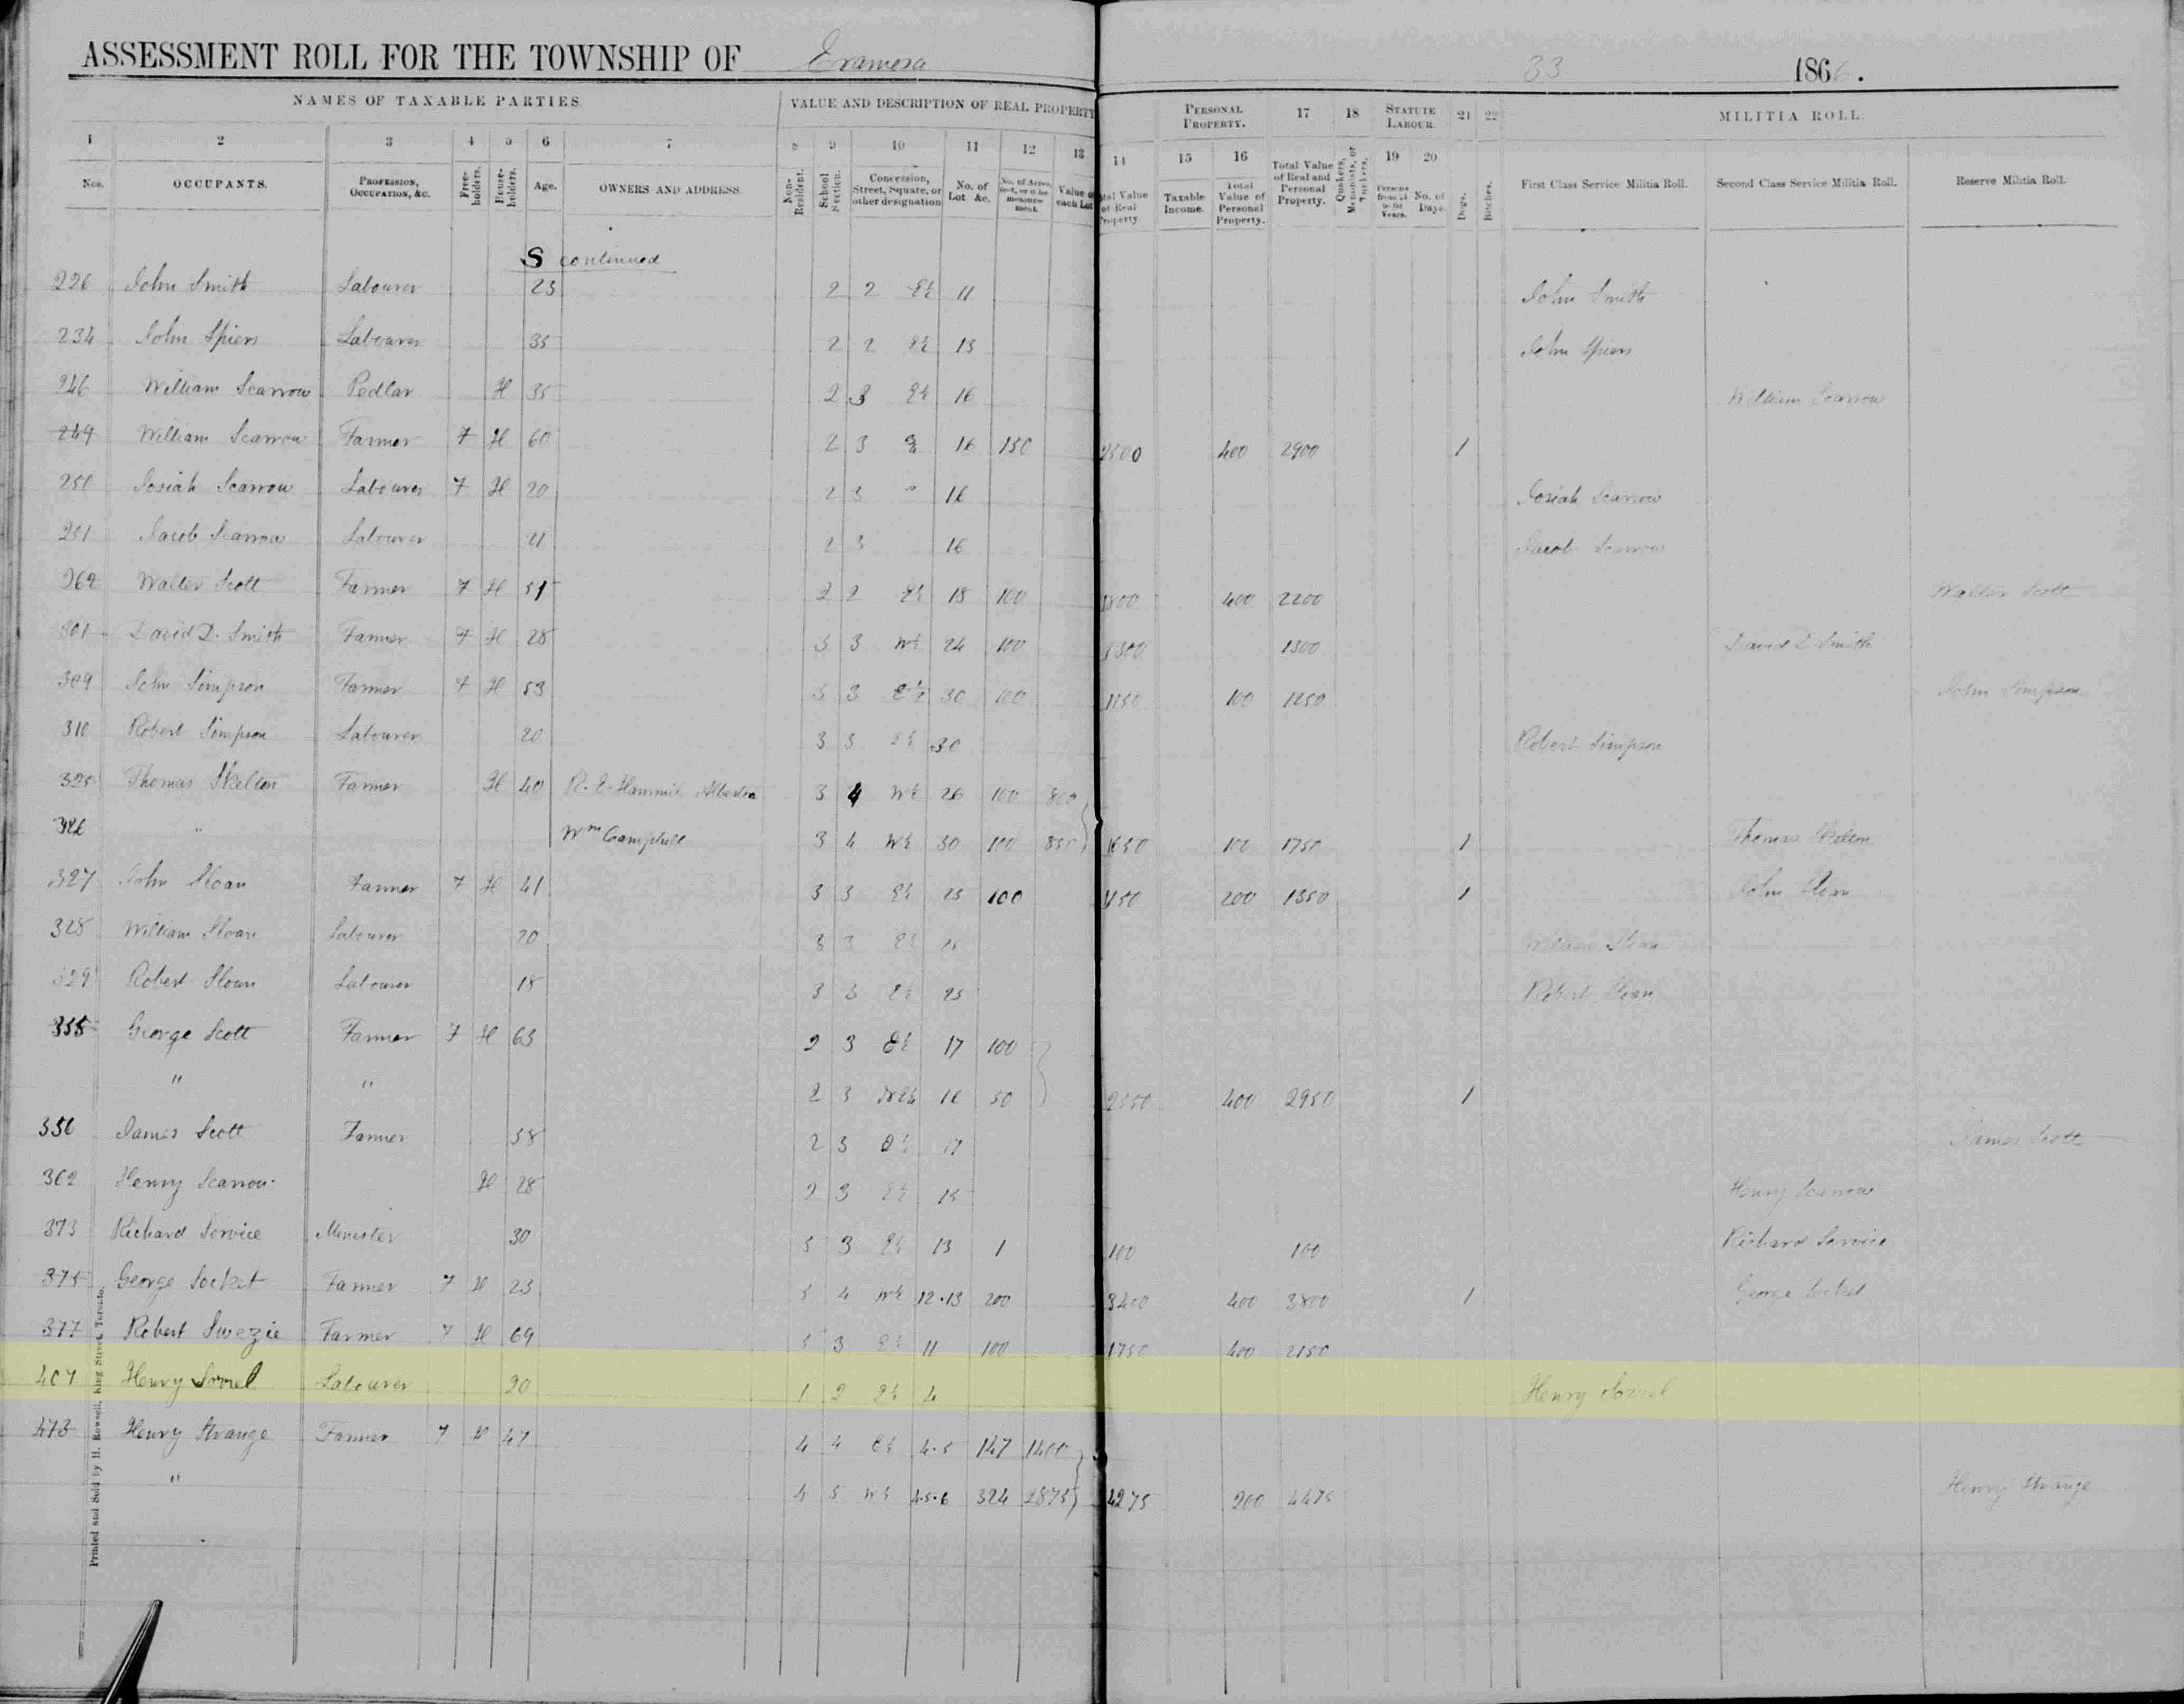 ASSESSMENT ROLL FOR THE TOWNSHIP OF Eramosa 33 1866.
NAMES OF TAXABLE PARTIES. VALUE AND DESCRIPTION OF REAL PROPERTY PERSONAL PROPERTY. 17 18 STATUTE LABOUR. 21 22 MILITIA ROLL.
1 2 3 4 5 6 7 8 9 10 11 12 13 14 15 16 19 20
Nos. OCCUPANTS. PROFESSION, OCCUPATION, &C. Free-holders. House-holders. Age. OWNERS AND ADDRESS. Non-Resident. School Section. Concession, Street, Square, or other designation No. of Lot &c. No. of Acres, feet, or other measurement. Value of each Lot Total Value of Real Property. Taxable Income. Total Value of Personal Property. Total Value of Real and Personal Property. Quakers, Menonists, or Tunkers. Persons from 21 to 60 Years. No. of Days. Dogs. Bitches. First Class Service Militia Roll. Second Class Service Militia Roll. Reserve Militia Roll.
S continued
226 John Smith Labourer 23 2 2 E½ 11 John Smith
234 John Spiers Labourer 35 2 2 E½ 13 John Spiers
246 William Scarrow Pedlar H 35 2 3 E½ 16 William Scarrow
249 William Scarrow Farmer F H 60 2 3 16 150 2500 400 2900 1
250 Josiah Scarrow Labourer F H 20 2 3 " 16 Josiah Scarrow
251 Jacob Scarrow Labourer 21 2 3 16 Jacob Scarrow
262 Walter Scott Farmer F H 51 2 2 E½ 18 100 1800 400 2200 Walter Scott
301 David D. Smith Farmer F H 28 3 3 W½ 24 100 1300 1300 David D Smith
309 John Simpson Farmer F H 53 3 3 E½ 30 100 1150 100 1250 John Simpson
310 Robert Simpson Labourer 20 3 3 E½ 30 Robert Simpson
325 Thomas Skelton Farmer H 40 R. E. Hammil 3 4 W½ 26 100 800
326 " Wm Campbell 3 4 W½ 30 100 850 1650 100 1750 1 Thomas Skelton
327 John Sloan Farmer F H 41 3 3 E½ 25 100 1150 200 1350 1 John Sloan
328 William Sloan Labourer 20 3 3 E½ 25 William Sloan
329 Robert Sloan Labourer 18 3 3 E½ 25 Robert Sloan
355 George Scott Farmer F H 63 2 3 E½ 17 100
" " 2 3 50 2550 400 2950 1
356 James Scott Farmer 58 2 3 E½ 17 James Scott
362 Henry Scarrow H 28 2 3 E½ 15 Henry Scarrow
373 Richard Service Minister 30 5 3 E½ 13 1 100 100 Richard Service
375 George Socket Farmer F H 23 5 4 W½ 12.13 200 3400 400 3800 1 George Socket
377 Robert Swezie Farmer F H 69 5 3 E½ 11 100 1750 400 2150
407 Henry Sorrel Labourer 20 1 2 E½ 4 Henry Sorrel
473 Henry Strange Farmer F H 47 4 4 E½ 4.5 147 1400
" 4 5 W½ 4.5.6 324 2875 4275 200 4475 Henry Strange
Printed and Sold by H. Rowsell, King Street, Toronto.